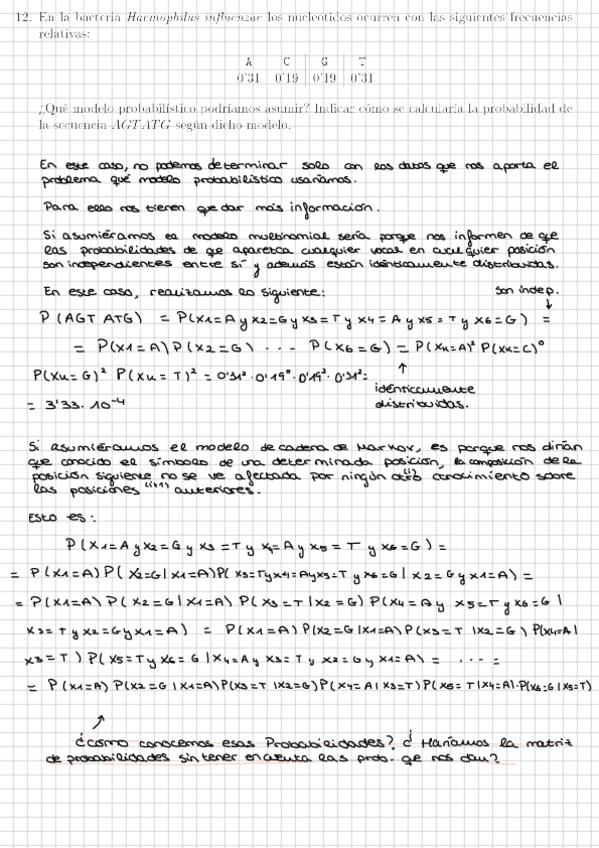 12. En la bacteria Haemophilus influenzae los nucleótidos ocurren con las siguientes frecuencias
relativas:
A C G T
0'31 0'19 0'19 0'31
¿Qué modelo probabilístico podríamos asumir? Indicar cómo se calcularía la probabilidad de
la secuencia AGTATG según dicho modelo.
En este caso, no podemos determinar solo con los datos que nos aporta el
problema qué modelo probabilístico usaríamos.
Para ello nos tienen que dar más información.
Si asumiéramos el modelo multinomial sería porque nos informen de que
las probabilidades de que aparezca cualquier vocal en cualquier posición
son independientes entre sí y además están idénticamente distribuidas.
En este caso, realizamos lo siguiente: son indep.
P (AGT ATG) = P(X1=A y X2=G y X3=T y X4=A y X5=T y X6=G) =
= P(X1=A) P(X2=G) ... P(X6=G) = P(Xk=A)² P(Xk=C)⁰
P(Xk=G)² P(Xk=T)² = 0'31² · 0'19⁰ · 0'19² · 0'31² =
idénticamente
= 3'33 · 10⁻⁴ distribuidas.
Si asumiéramos el modelo de cadena de Markov, es porque nos dirían
que conocido el símbolo de una determinada posición, la composición de la
posición siguiente no se ve afectada por ningún otro conocimiento sobre
las posiciones anteriores.
Esto es:
P(X1=A y X2=G y X3=T y X4=A y X5=T y X6=G) =
= P(X1=A) P(X2=G|X1=A) P(X3=T y X4=A y X5=T y X6=G|X2=G y X1=A) =
= P(X1=A) P(X2=G|X1=A) P(X3=T|X2=G) P(X4=A y X5=T y X6=G|
X3=T y X2=G y X1=A) = P(X1=A) P(X2=G|X1=A) P(X3=T|X2=G) P(X4=A|
X3=T) P(X5=T y X6=G|X4=A y X3=T y X2=G y X1=A) = ... =
= P(X1=A) P(X2=G|X1=A) P(X3=T|X2=G) P(X4=A|X3=T) P(X5=T|X4=A) · P(X6=G|X5=T)
¿cómo conocemos esas Probabilidades? ¿Haríamos la matriz
de probabilidades sin tener en cuenta las prob. qe nos dan?